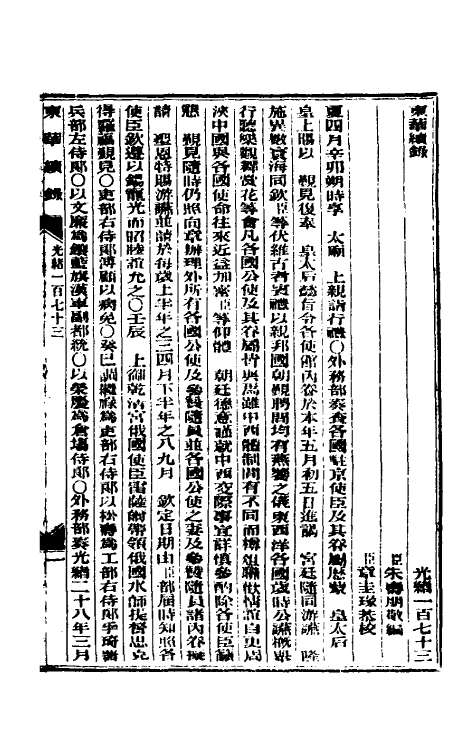 東華續錄
光緒一百七十三
臣朱壽朋敬編
臣章圭瑑恭校
夏四月辛卯朔時享 太廟 上親詣行禮〇外務部奏查各國駐京使臣及其眷屬屢蒙 皇太后
皇上賜以 覲見復奉 皇太后懿旨令各使館內眷於本年五月初五日進謁 宮廷隨同游讌 隆
施異數寰海同欽臣等伏維古者賓禮以親邦國朝覲聘問均有燕饗之儀東西洋各國歲時公讌概舉
行聽樂觀舞賞花等會凡各國公使及其眷屬皆與焉雖中西體制間有不同而樽俎聯歡情誼自更周
浹中國與各國使命往來近益加密臣等仰體 朝廷德意謹就中西交際事宜詳慎參酌除各使臣
覲見隨時仍照向章辦理外所有各國公使及參贊隨員並各國公使之妻及參贊隨員諸內眷擬
請 聖恩特賜游讌並請於每歲上半年之三四月下半年之八九月 欽定日期由臣部屆時知照各
使臣欽遵以錫寵光而昭睦誼允之〇壬辰 上御乾清宮俄國使臣雷薩爾帶領俄國水師提督思克
得羅 覲見〇吏部右侍郎溥顧以病免〇癸巳調 為吏部右侍郎以松壽為工部右侍郎李
兵部左侍郎〇以文廉為鑲藍旗漢軍副都統〇以榮慶為倉場侍郎〇外務部奏光緒二十八年三月
東華續錄 光緒一百七十三 一